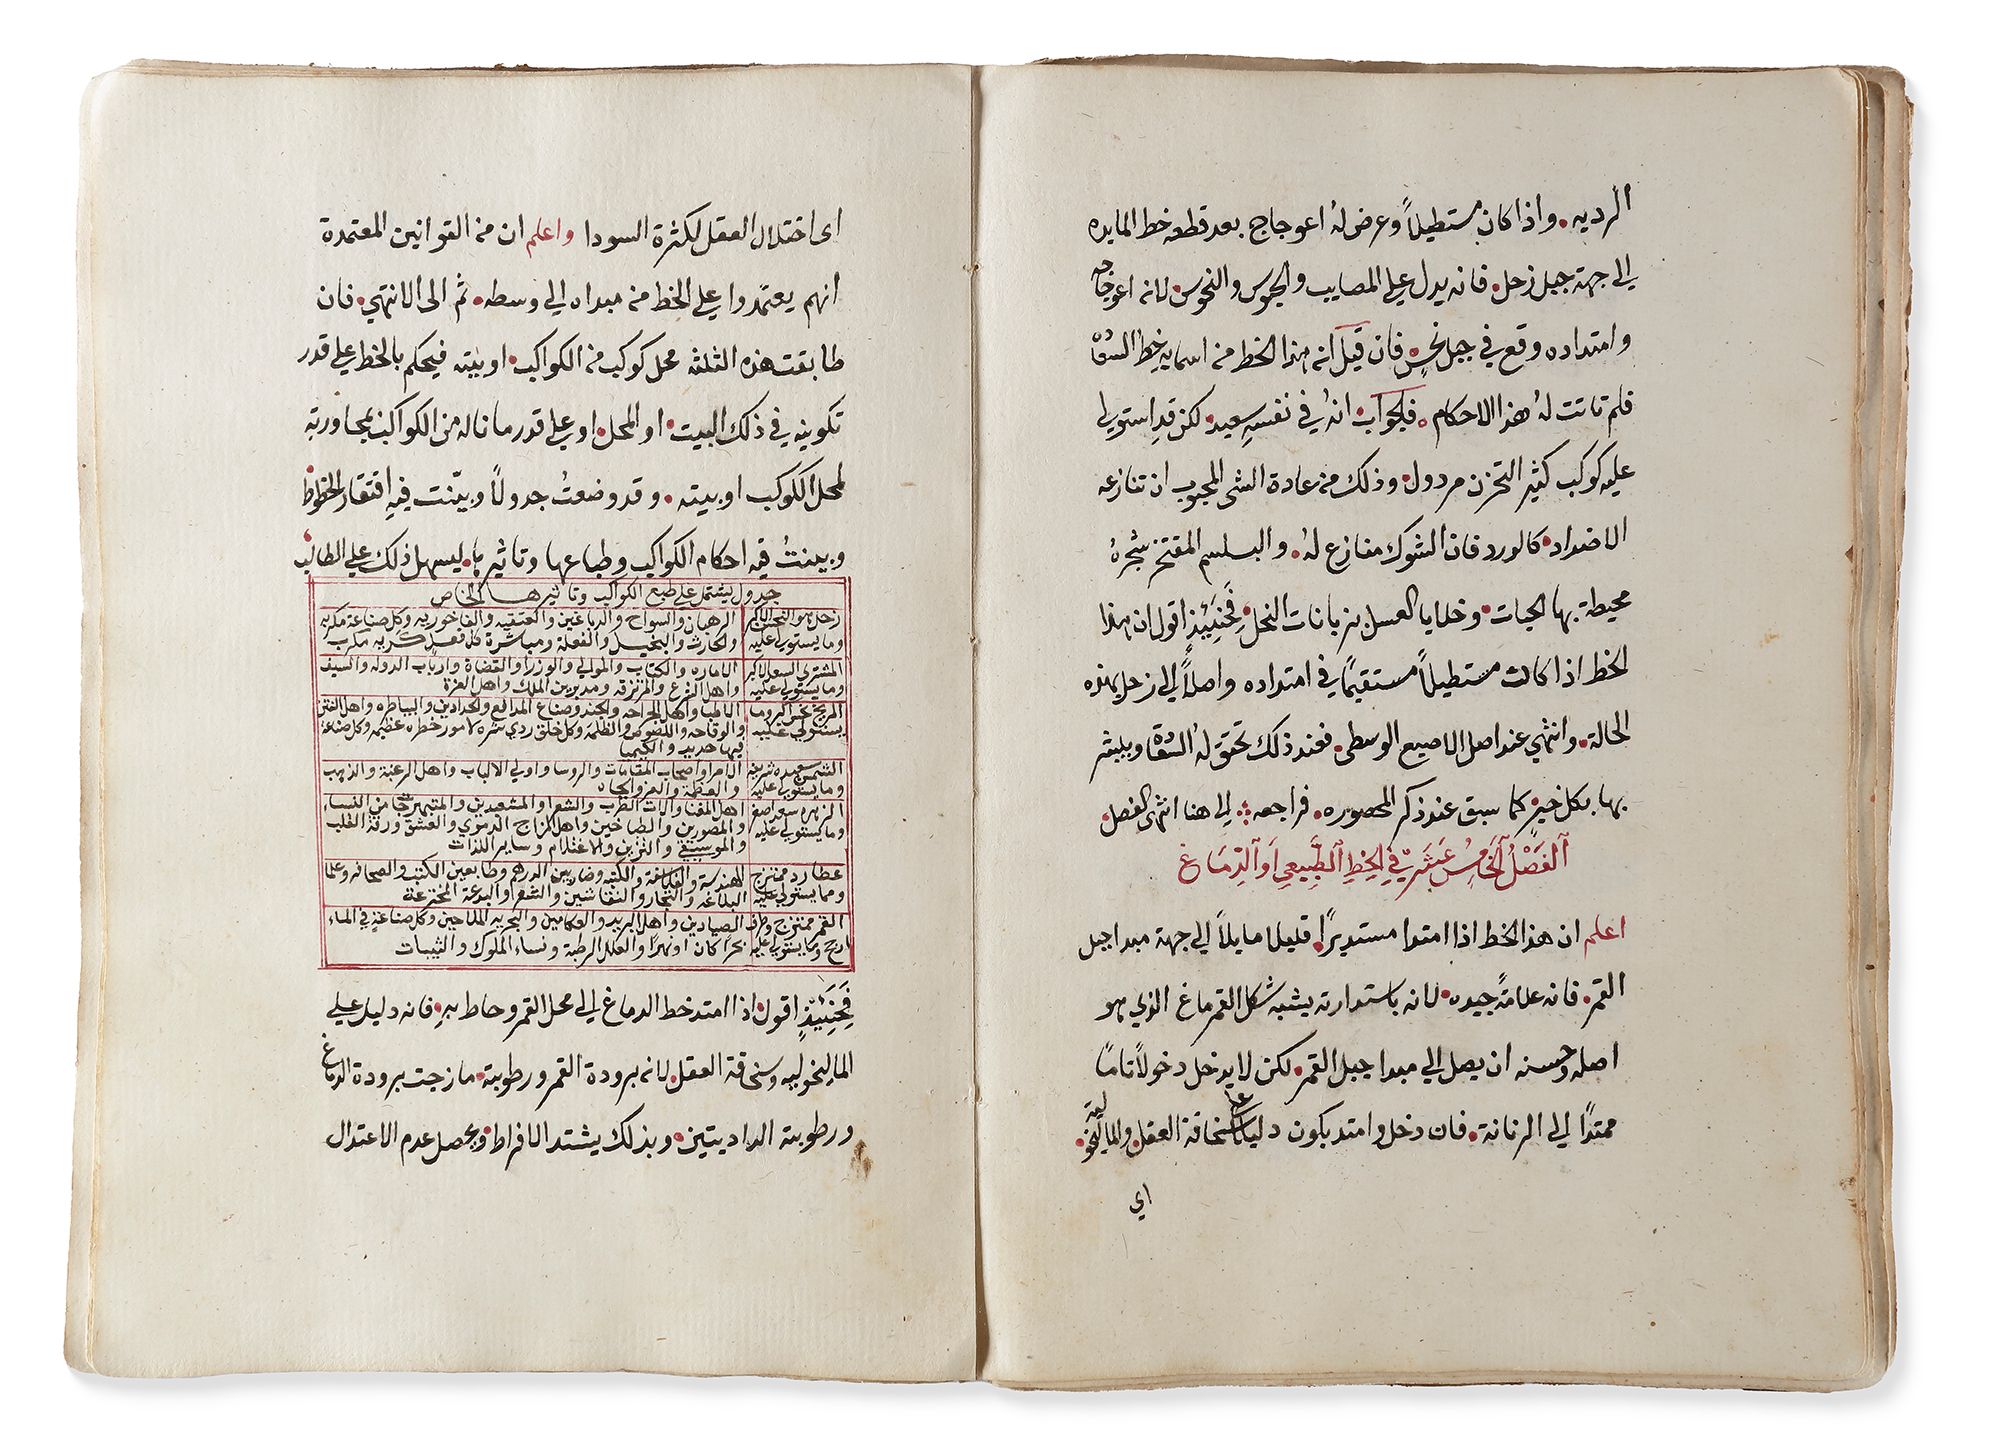 الرديه. واذا كان مستطيلاً وعرض لهُ اعوجاج بعد قطعه خط المايده
الي جهة جبل زحل. فانه يدل علي المصايب والحبوس والنحوس. لانه اعوجاجه
وامتداده وقع في جبل نحس. فان قيل انه هذا الخط من اسمايه خط السعادة
فلم تاتت لهُ هذا الاحكام. فالجواب انهُ في نفسهِ سعيد. لكن قد استولي
عليه كوكب كثير التحزن مردول. وذلك من عادة الشي المحبوب ان تنازعه
الاضداد. كالورد فان الشوك منازع لهُ. والبلسم المفتخر شجرهُ
محيطة بها الحيات. وخلايا العسل بزبانات النحل. فَحِينَئِذٍ اقول ان هذا
الخط اذا كانت مستطيلاً مستقيماً في امتداده واصلاً الي زحل بهذه
الحالة. وانتهي عند اصل الاصبع الوسطي. فعند ذلك تحقق لهُ السعادة ويبشر
بها بكل خير. كما سبق عند ذكر المحصوره. فراجعه الي هنا انتهي الفصل.
اَلفَصْلُ اَلخَامِسُ عَشَرَ فِي الخطِ اَلطَّبِيعي اَو اَلدِّمَاغ
اعلم ان هذا الخط اذا امتدا مستديرًا. قليلا مايلاً الي جهة مبدا جبل
القمر. فانه علامةً جيده. لانه باستدارته يشبه شكل القمر ماغ الذي هو
اصله وحسنه ان يصل الي مبدا جبل القمر. لكن لا يدخل دخولاً تامًا
ممتدًا الي الرنانة. فان دخل وامتد يكون دليلاً علي سخافة العقل. والماليخوليه.
اي
اي اختلال العقل لكثرة السودا واعلم ان من القوانين المعتمدة
انهم يعتمدوا علي الخط من مبداه الي وسطه. ثم الي الانتهي. فان
طابقت هذه الثلثه محل كوكب من الكواكب. او بيته فيحكم بالخط علي قدر
تكوينه في ذلك البيت. او المحل. او علي قدر ما ناله من الكواكب بمجاورته
لمحل الكوكب او بيته. وقد وضعتُ جدولاً وبيّنت فيهِ افتقار الخطوط
وبينتُ فيه احكام الكواكب وطباعها وتاثيرها. ليسهل ذلك علي الطالب
جدول يشتمل علي طبع الكواكب وتاثيرها الخاص
زحل هو النحس الاكبر الرهبان والسواح والدباغين والعتقيه والفاخوريه وكل صناعة مكربه
وما يستولي عليه والحارث والبخيل والفعلة ومباشرة كل فعل كريه مكرب
المشتري السعد الاكبر الاماره والكتاب والموالي والوزرا والقضاة وارباب الدوله والسيف
وما يستولي عليه واهل الفرع والمرتزقه ومدبرين الملك واهل العزة
المريخ نحس اكبر وما الاطبا واهل الجراحه والجند وصناع المدافع والحدادين والبياطره واهل الفتن
يستولي عليه والوقاحه واللصوص والظلمة وكل خلق ردي شره لامور خطره عظيمه وكل صناعة
فيها حديد والكيميا
الشمس سعيده شريفه الامرا واصحاب المقامات والروسا واولي الالباب واهل الرغبة والذهب
وما يستولي عليه والعظمة والعز والجاه
الزهره سعد اصغر اهل المغنا والات الطرب والشعرا والمشعدين والمتبهرجات من النساء
وما يستولي عليه والمصورين والطباخين واهل المزاج الدموي والعشق ورقة القلب
والموسيقي والتزين والاغتلام وساير اللذات
عطارد ممتزج الهندسة والفلاسفة والكتبه وضاربين الدرهم وطابعين الكتب والصحافه وعلما
ومما يستولي عليه البلاغه والتجار والنقاشين والشعر والبدعة المخترعة
القمر ممتزج وطرف الصيادين واهل البريد والعكامين والبحريه الملاحين وكل صناعةٍ في الماء
ريح وما يستولي عليه بحراً كان او نهراً والعلل الرطبة ونساء الملوك والثيبات
فَحَينَئِذٍ اقول. اذا امتد خط الدماغ الي محل القمر وحاط بهِ. فانه دليل علي
الماليخوليه وسخافة العقل. لانه برودة القمر ورطوبته. مازجت برودة الدماغ
ورطوبته الداديتين. وبذلك يشتد الافراط. ويحصل عدم الاعتدال